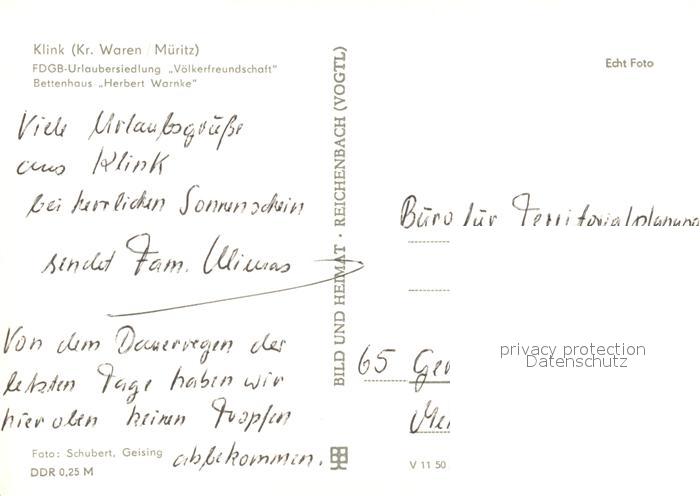 Klink (Kr. Waren Müritz)
FDGB-Urlaubersiedlung „Völkerfreundschaft"
Bettenhaus „Herbert Warnke"
Viele Urlaubsgrüße
aus Klink
bei herrlichen Sonnenschein
sendet Fam.
Von dem Dauerregen der
letzten Tage haben wir
hier oben keinen Tropfen
abbekommen.
Foto: Schubert, Geising
DDR 0,25 M
BILD UND HEIMAT · REICHENBACH (VOGTL)
Echt Foto
Büro für Territorialplanung
65 Ger
privacy protection
Datenschutz
V 11 50